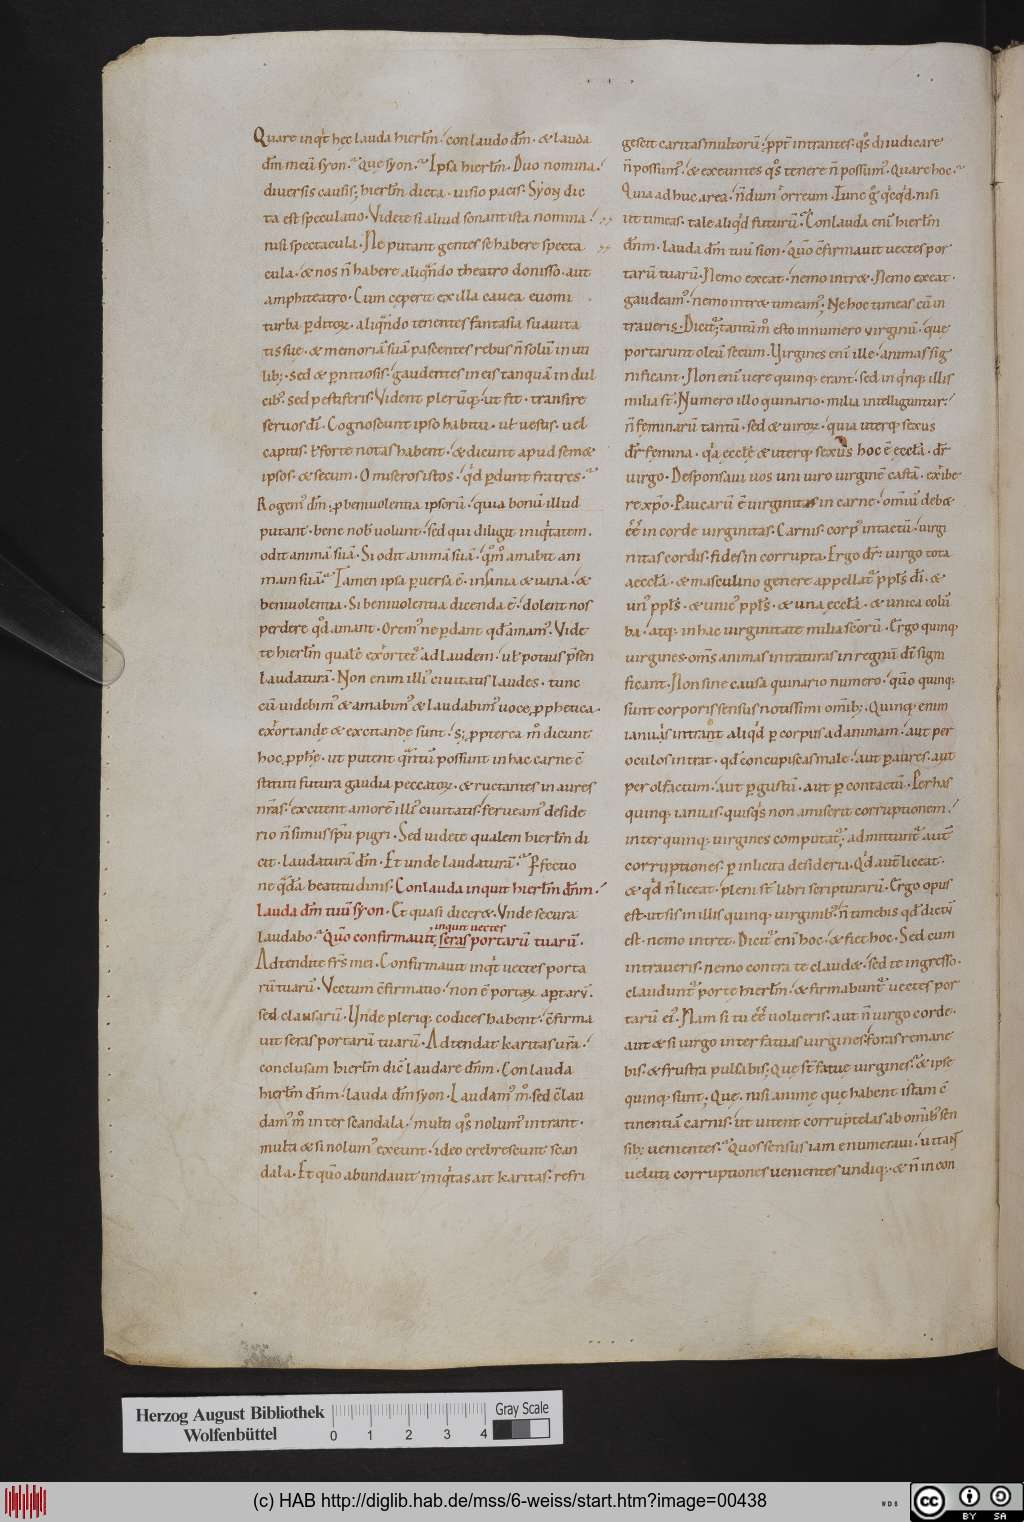 Quare inq̇t hęc lauda hierłm. conlaudo dm̅. & lauda
dm̅ meū syon. Quę syon. Ipsa hierłm. Duo nomina.
diuersis causis; hierłm dicta. uisio pacis. Syon dic
ta est speculatio. Videte si aliud sonant ista nomina.
nisi spectacula. Ne putant gentes se habere specta
cula. & nos n̅ habere aliqn̅do theatro donisso. aut
amphiteatro. Cum cęperit ex illa cauea euomi
turba p̱ditoꝝ. aliqn̅do tenentes fantasia suauita
tis suę. & memoriā suā pascentes rebus n̅ solū inuti
lib; sed & p̱nitiosis. gaudentes in eis tanquā in dul
cib; sed pestiferis. Vident plerūq;. ut fit. transire
seruos dī. Cognoscunt ipso habitu. uł uestis. uel
capitis. uł forte notas habent. & dicunt apud sem&
ipsos. & secum. O miseros istos. q̇d p̱dunt fratres.
Rogem᾽ dm̅. p̱ beniuolentia ipsorū. quia bonū illud
putant. bene nob̅ uolunt. sed qui diligit iniq̇tatem.
odit animā suā. Si odit animā suā. qm̊o amabit ani
mam suā. Tamen ipsa p̱uersa ē. insania & uana. &
beniuolentia. Si beniuolentia dicenda ē. dolent nos
perdere qd̊ amant. Orem᾽ ne p̱dant qd̊ amam᾽. Vide
te hierłm qualē exortet᾽ ad laudem. uł potius p̅sen
laudaturā. Non enim illi᾽ ciuitatis laudes. tunc
cū uidebim᾽ & amabim᾽ & laudabim᾽ uoce, prophetica.
exortandę & excitandę sunt. S; propterea m̊ dicunt
hoc, pph̅ę. ut putent q̅ntū possunt in hac carne cō
stituti futura gaudia peccatoꝝ. & ructantes in aures
nr̅as. excitent amorē illi᾽ ciuitatis. ferueam᾽ deside
rio n̅ simus sp̅u pigri. Sed uidete qualem hierłm di
cit. laudaturā dm̅. Et unde laudaturā. Perfectio
ne q̇dā beatitudinis. Conlauda inquit hierłm dn̅m.
lauda dm̅ tuū syon. Et quasi dicer&. Vnde secura
inquit uectes
laudabo. Qm̅o confirmauit, seras portarū tuarū.
Adtendite fr̅s mei. Confirmauit inq̇t uectes porta
rū tuarū. Vectum c̅firmatio. non ē portaꝝ ap̱tarū.
sed clausarū. Unde pleriq; codices habent. c̅firma
uit seras portarū tuarū. Adtendat karitas ur̅a.
conclusam hierłm dic̅ laudare dn̅m. Conlauda
hierłm dn̅m. lauda dm̅ syon. Laudam᾽ m̊. sed c̅lau
dam᾽ m̊ inter scandala. multi q̊s nolum᾽ intrant.
multi & si nolum᾽ exeunt. ideo crebrescunt scan
dala. Et qm̅o abundauit iniq̇tas ait karitas. refri
gescit caritas multorū; ppt̅ intrantes. q̊s diiudicare
n̅ possum᾽. & exeuntes q̊s tenere n̅ possum᾽. Quare hoc.
Quia adhuc area. n̅dum orreum. Tunc g̊ q̇cq̇d. nisi
ut timeas. tale aliq̇d futurū. Conlauda eni̅ hierłm
dn̅m. lauda dm̅ tuū sion. qm̅o c̅firmauit uectes por
tarū tuarū. Nemo exeat. nemo intr&. Nemo exeat.
gaudeam᾽. nemo intr& timeam᾽; Ne hoc timeas cū in
traueris. Dicit᾽; tantū m̊ esto in numero virginū. quę
portarunt oleū secum. Virgines eni̅ ille. animas sig
nificant. Non eni̅ uere quinq; erant. sed in q̇nq; illis
milia st̅. Numero illo quinario. milia intelliguntur.
n̅ feminarū tantū. sed & uiroꝝ. quia uterq; sexus
dr̅ femina. q̇a ęcclę & uterq; sexus hoc ē ęccła. dr̅
uirgo. Desponsaui uos uni uiro uirginē castā. exibe
re xp̅o. Paucarū ē uirginitas in carne. omniū deb&
eē in corde uirginitas. Carnis. corp᾽ intactū. uirgi
nitas cordis. fides in corrupta. Ergo dr̅. uirgo tota
aeccła. & masculino genere appellat᾽ ppłs dī. &
un᾽ ppłs. & unic᾽ ppłs. & una ęccła. & unica colū
ba. atq; in hac uirginitate milia sc̅orū. Ergo quinq;
uirgines. omn̅s animas intraturas in regnū dī signi
ficant. Non sine causa quinario numero. qm̅o quinq;
sunt corporis sensus notissimi omib;. Quinq; enim
ianuis intrant aliq̇d p̱ corpus ad animam. aut per
oculos intrat. qd̊ concupiscas male. aut p̱ aures. aut
per olfactum. aut p̱ gustū. aut p̱ contactū. Per has
quinq; ianuas. quisq̇s non amiserit corruptionem.
inter quinq; uirgines computat᾽; admittunt᾽ aut̅
corruptiones. p̱ inlicita desideria. Qd̊ aut̅ liceat.
& q̇d n̅ liceat. pleni st̅ libri scripturarū. Ergo opus
est. ut sis in illis quinq; uirginib᾽. n̅ timebis qd̊ dictū
est. nemo intret. Dicit᾽ eni̅ hoc. & fiet hoc. Sed cum
intraueris. nemo contra te claud&. sed te ingresso.
claudunt᾽ porte hierłm. & firmabunt᾽ uectes por
tarū ei᾽. Nam si tu eē uolueris. aut n̅ uirgo corde.
aut & si uirgo inter fatuas uirgines. foras remane
bis. & frustra pulsabis. Que st̅ fatuę uirgines. & ipse
quinq; sunt; Quę. nisi animę quę habent istam c̅
tinentiā carnis. ut uitent corruptelas ab omib᾽ sen
sib; uenientes. Quos sensus iam enumeraui. uitans
ueluti corruptiones uenientes undiq;. & n̅ in con
Herzog August Bibliothek
Wolfenbüttel
0 1 2 3 4
Gray Scale
(c) HAB http://diglib.hab.de/mss/6-weiss/start.htm?image=00438
WDB
cc BY SA